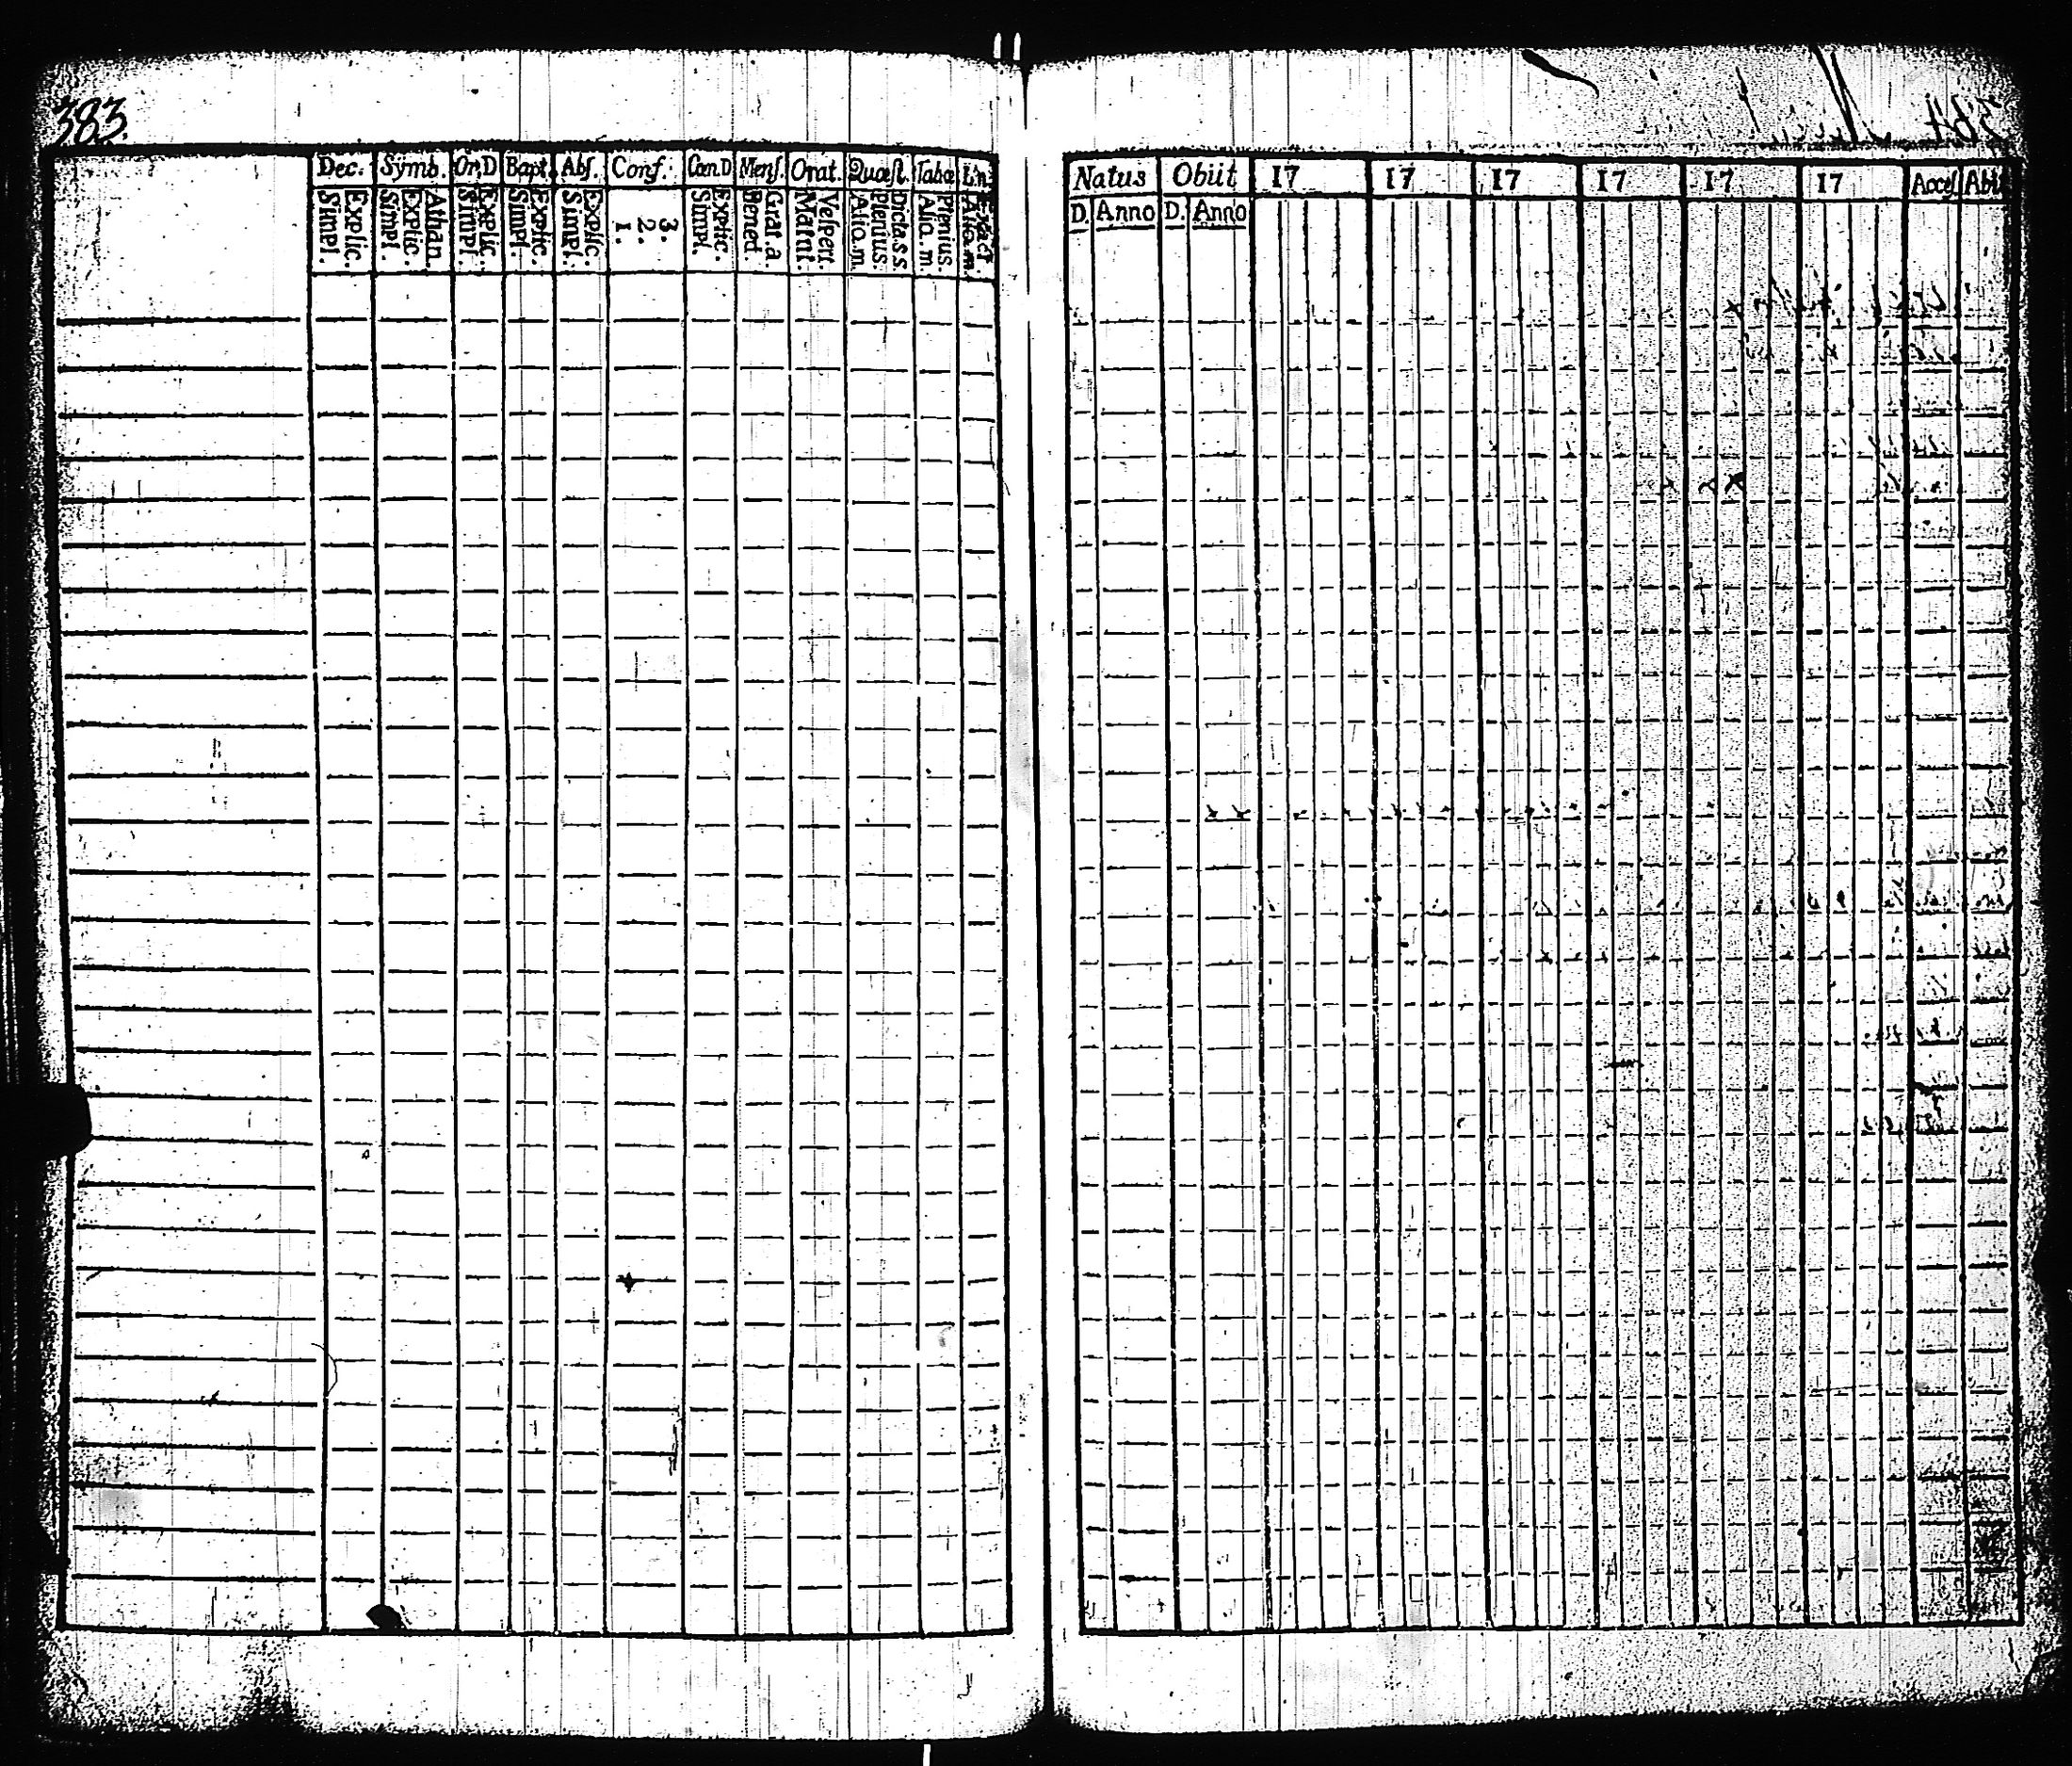 383.
Dec. Symb. Or.D Bapt. Abs. Conf. Can.D Mens. Orat. Quæst. Tabæ
Simpl. Explic. Simpl. Explic. Athan. Simpl. Explic. Simpl. Explic. Simpl. Explic. 1. 2. 3. Simpl. Explic. Bened. Grat.a. Matut. Vespert. Alio.m. Plenius. Dicta.s s Alio.m. Plenius. Alio.m.
Natus Obiit 17 17 17 17 17 17 Acces. Abi
D. Anno D. Anno